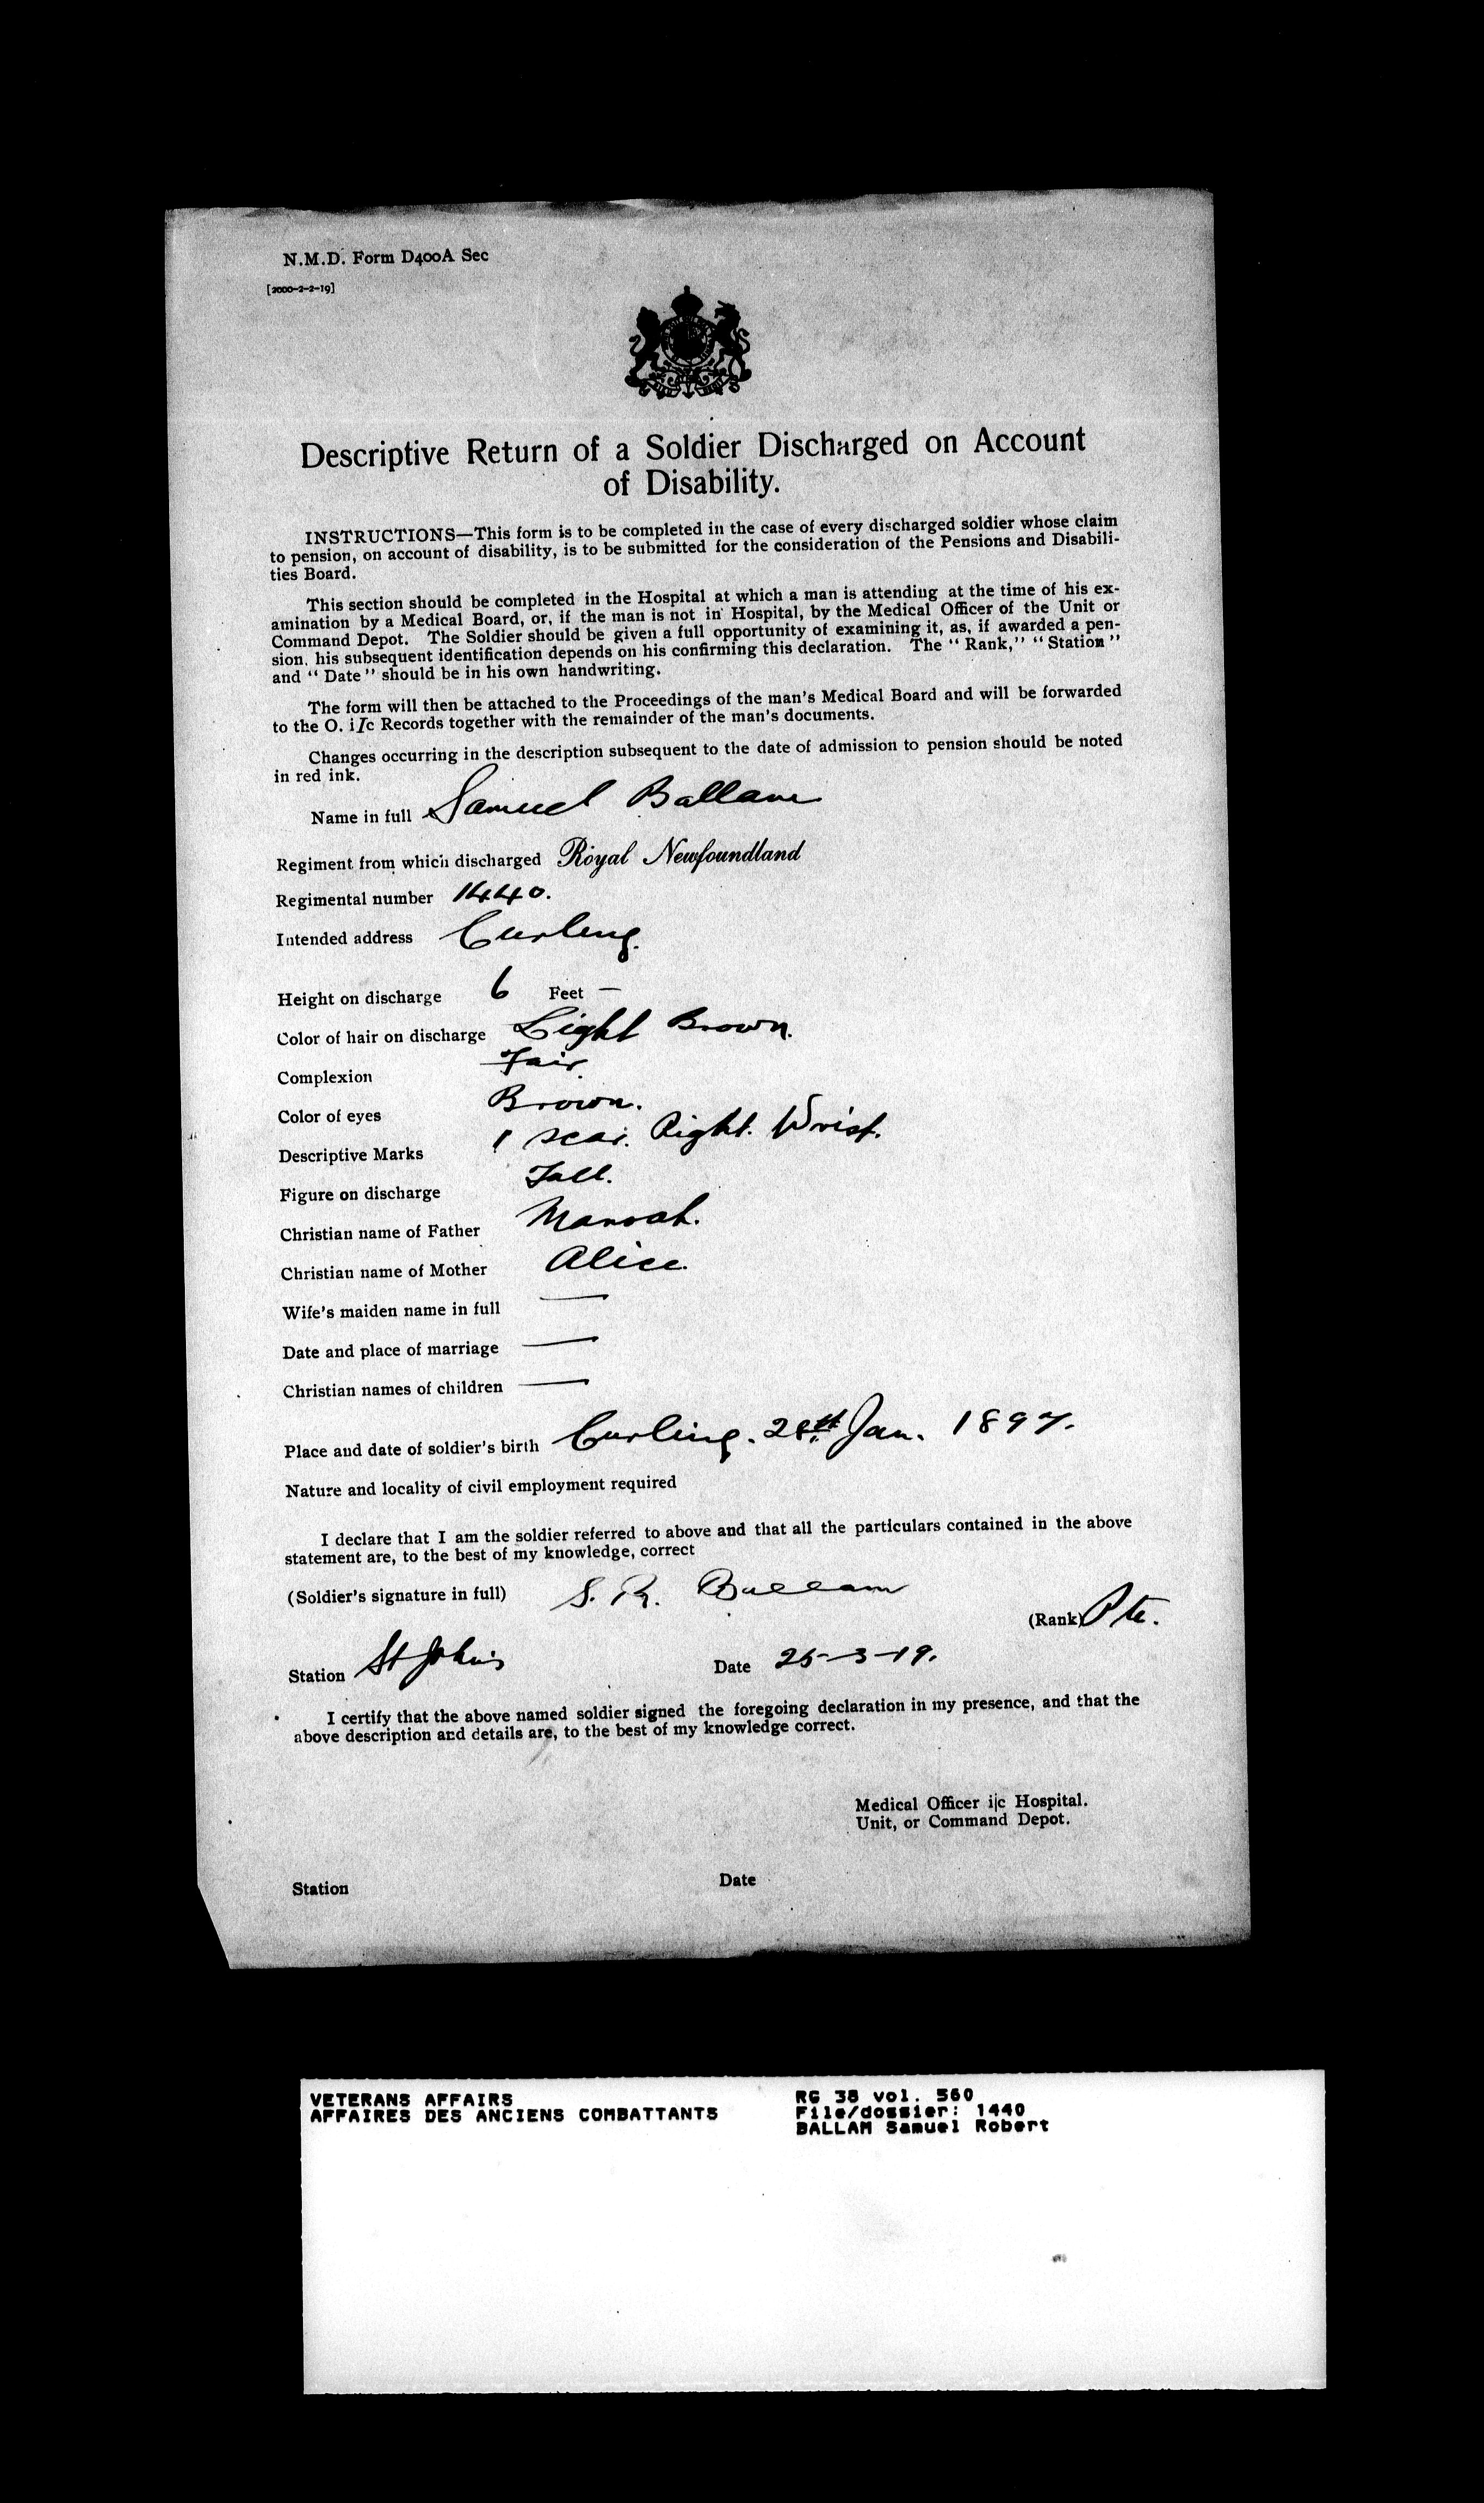 N.M.D. Form D400A Sec
[2000-2-2-19]
Descriptive Return of a Soldier Discharged on Account
of Disability.
INSTRUCTIONS—This form is to be completed in the case of every discharged soldier whose claim
to pension, on account of disability, is to be submitted for the consideration of the Pensions and Disabili-
ties Board.
This section should be completed in the Hospital at which a man is attending at the time of his ex-
amination by a Medical Board, or, if the man is not in Hospital, by the Medical Officer of the Unit or
Command Depot. The Soldier should be given a full opportunity of examining it, as, if awarded a pen-
sion, his subsequent identification depends on his confirming this declaration. The "Rank," "Station"
and "Date" should be in his own handwriting.
The form will then be attached to the Proceedings of the man's Medical Board and will be forwarded
to the O. i/c Records together with the remainder of the man's documents.
Changes occurring in the description subsequent to the date of admission to pension should be noted
in red ink.
Name in full Samuel Ballam
Regiment from which discharged Royal Newfoundland
Regimental number 1440.
Intended address Curling.
Height on discharge 6 Feet —
Color of hair on discharge Light Brown.
Complexion Fair.
Color of eyes Brown.
Descriptive Marks 1 scar. Right. Wrist.
Figure on discharge Tall.
Christian name of Father Manoah.
Christian name of Mother Alice.
Wife's maiden name in full —
Date and place of marriage —
Christian names of children —
Place and date of soldier's birth Curling. 28th Jan. 1897.
Nature and locality of civil employment required
I declare that I am the soldier referred to above and that all the particulars contained in the above
statement are, to the best of my knowledge, correct
(Soldier's signature in full) S. R. Ballam
(Rank) Pte.
Station St Johns Date 25-3-19.
I certify that the above named soldier signed the foregoing declaration in my presence, and that the
above description and details are, to the best of my knowledge correct.
Medical Officer i|c Hospital.
Unit, or Command Depot.
Station Date
VETERANS AFFAIRS RG 38 vol. 560
AFFAIRES DES ANCIENS COMBATTANTS File/dossier: 1440
BALLAM Samuel Robert